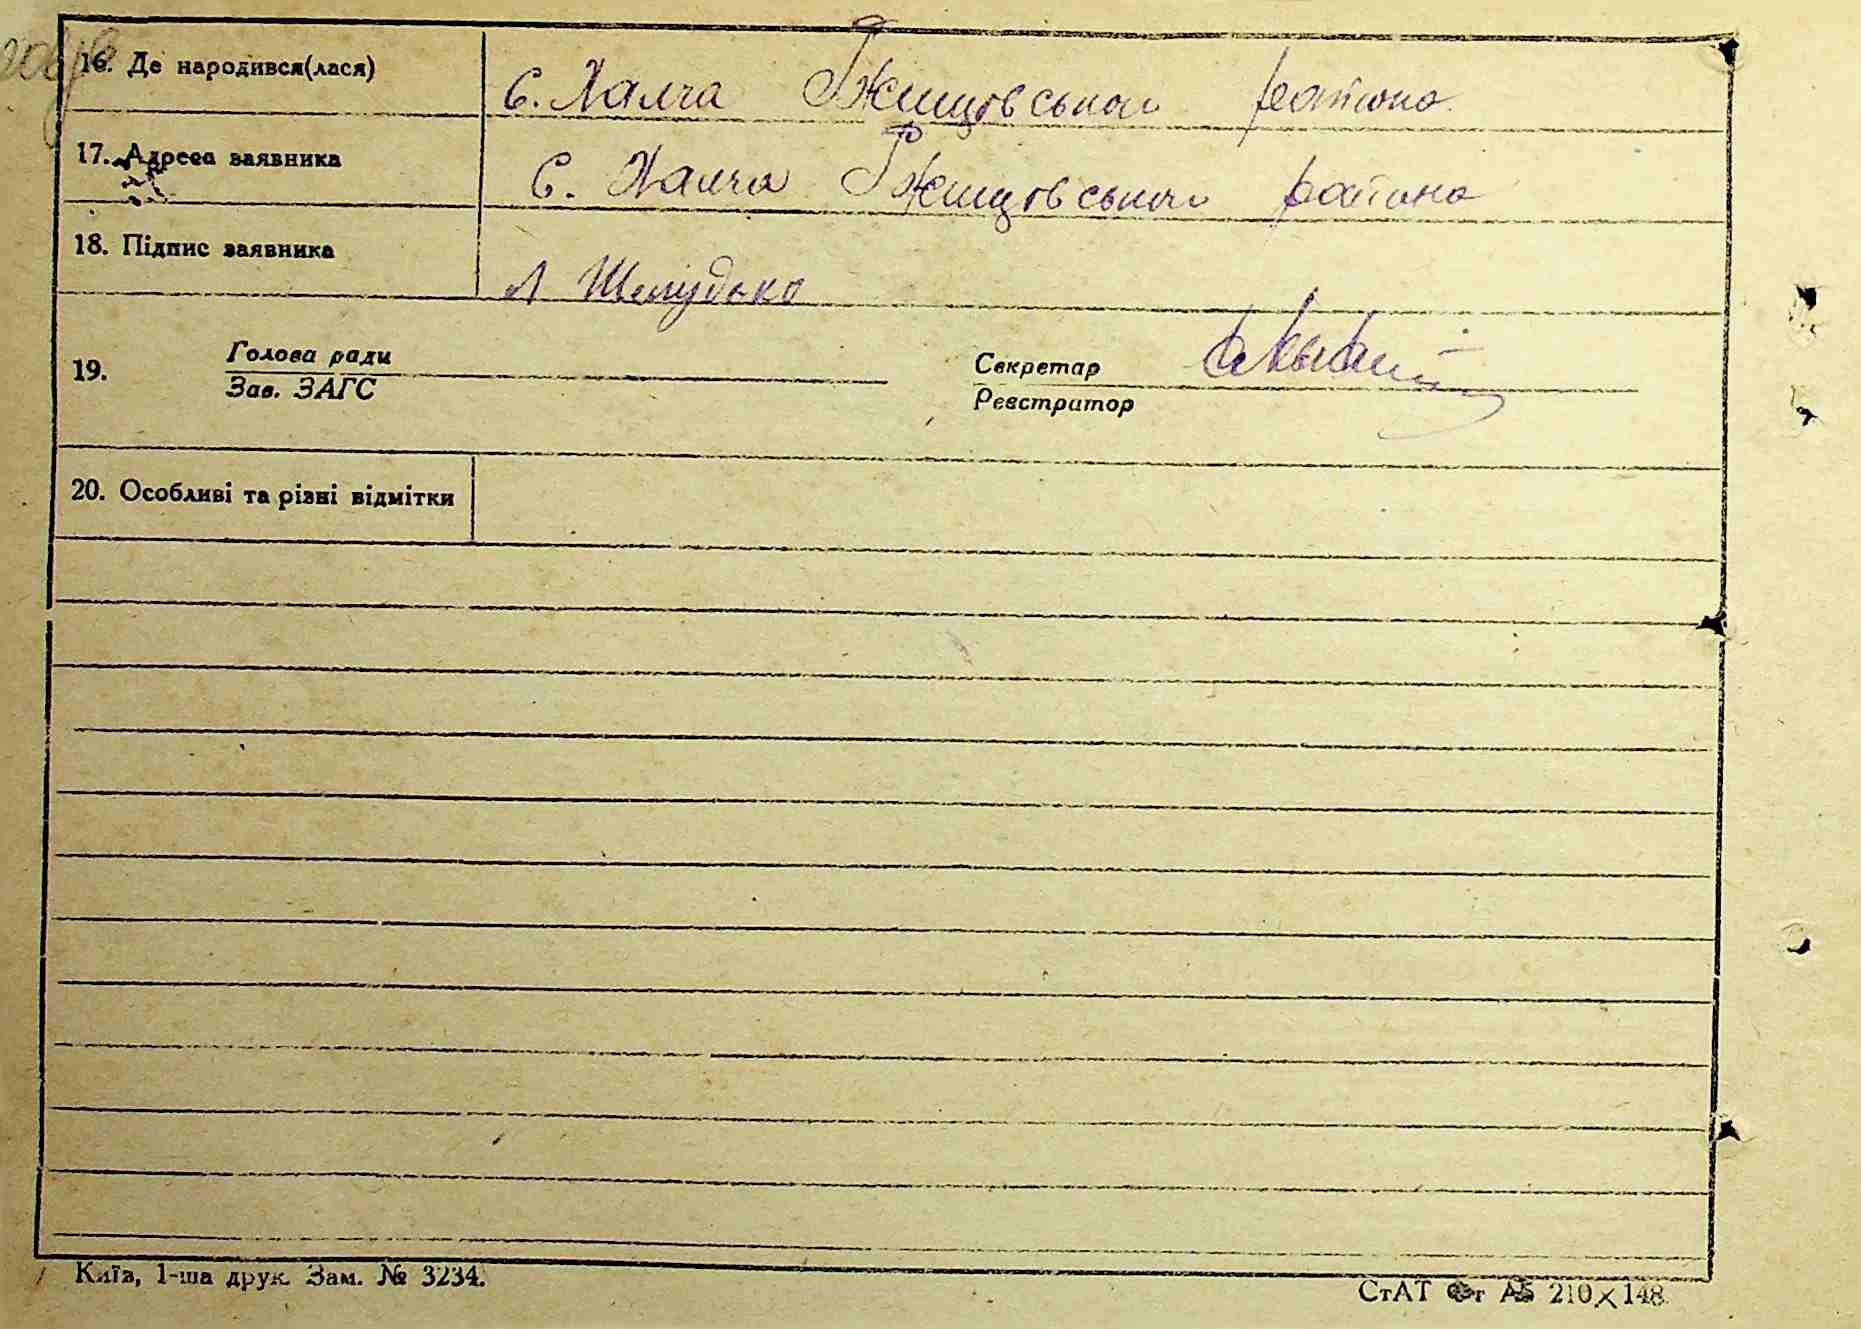 16. Де народився(лася)
с. Халча Ржищовського района
17. Адреса заявника
с. Халча Ржищовського района
18. Підпис заявника
Л Шелудько
19.
Голова ради
Зав. ЗАГС
Секретар
Реєстратор
20. Особливі та різні відмітки
Київ, 1-ша друк. Зам. № 3234.
СтАТ Фг А5 210×148